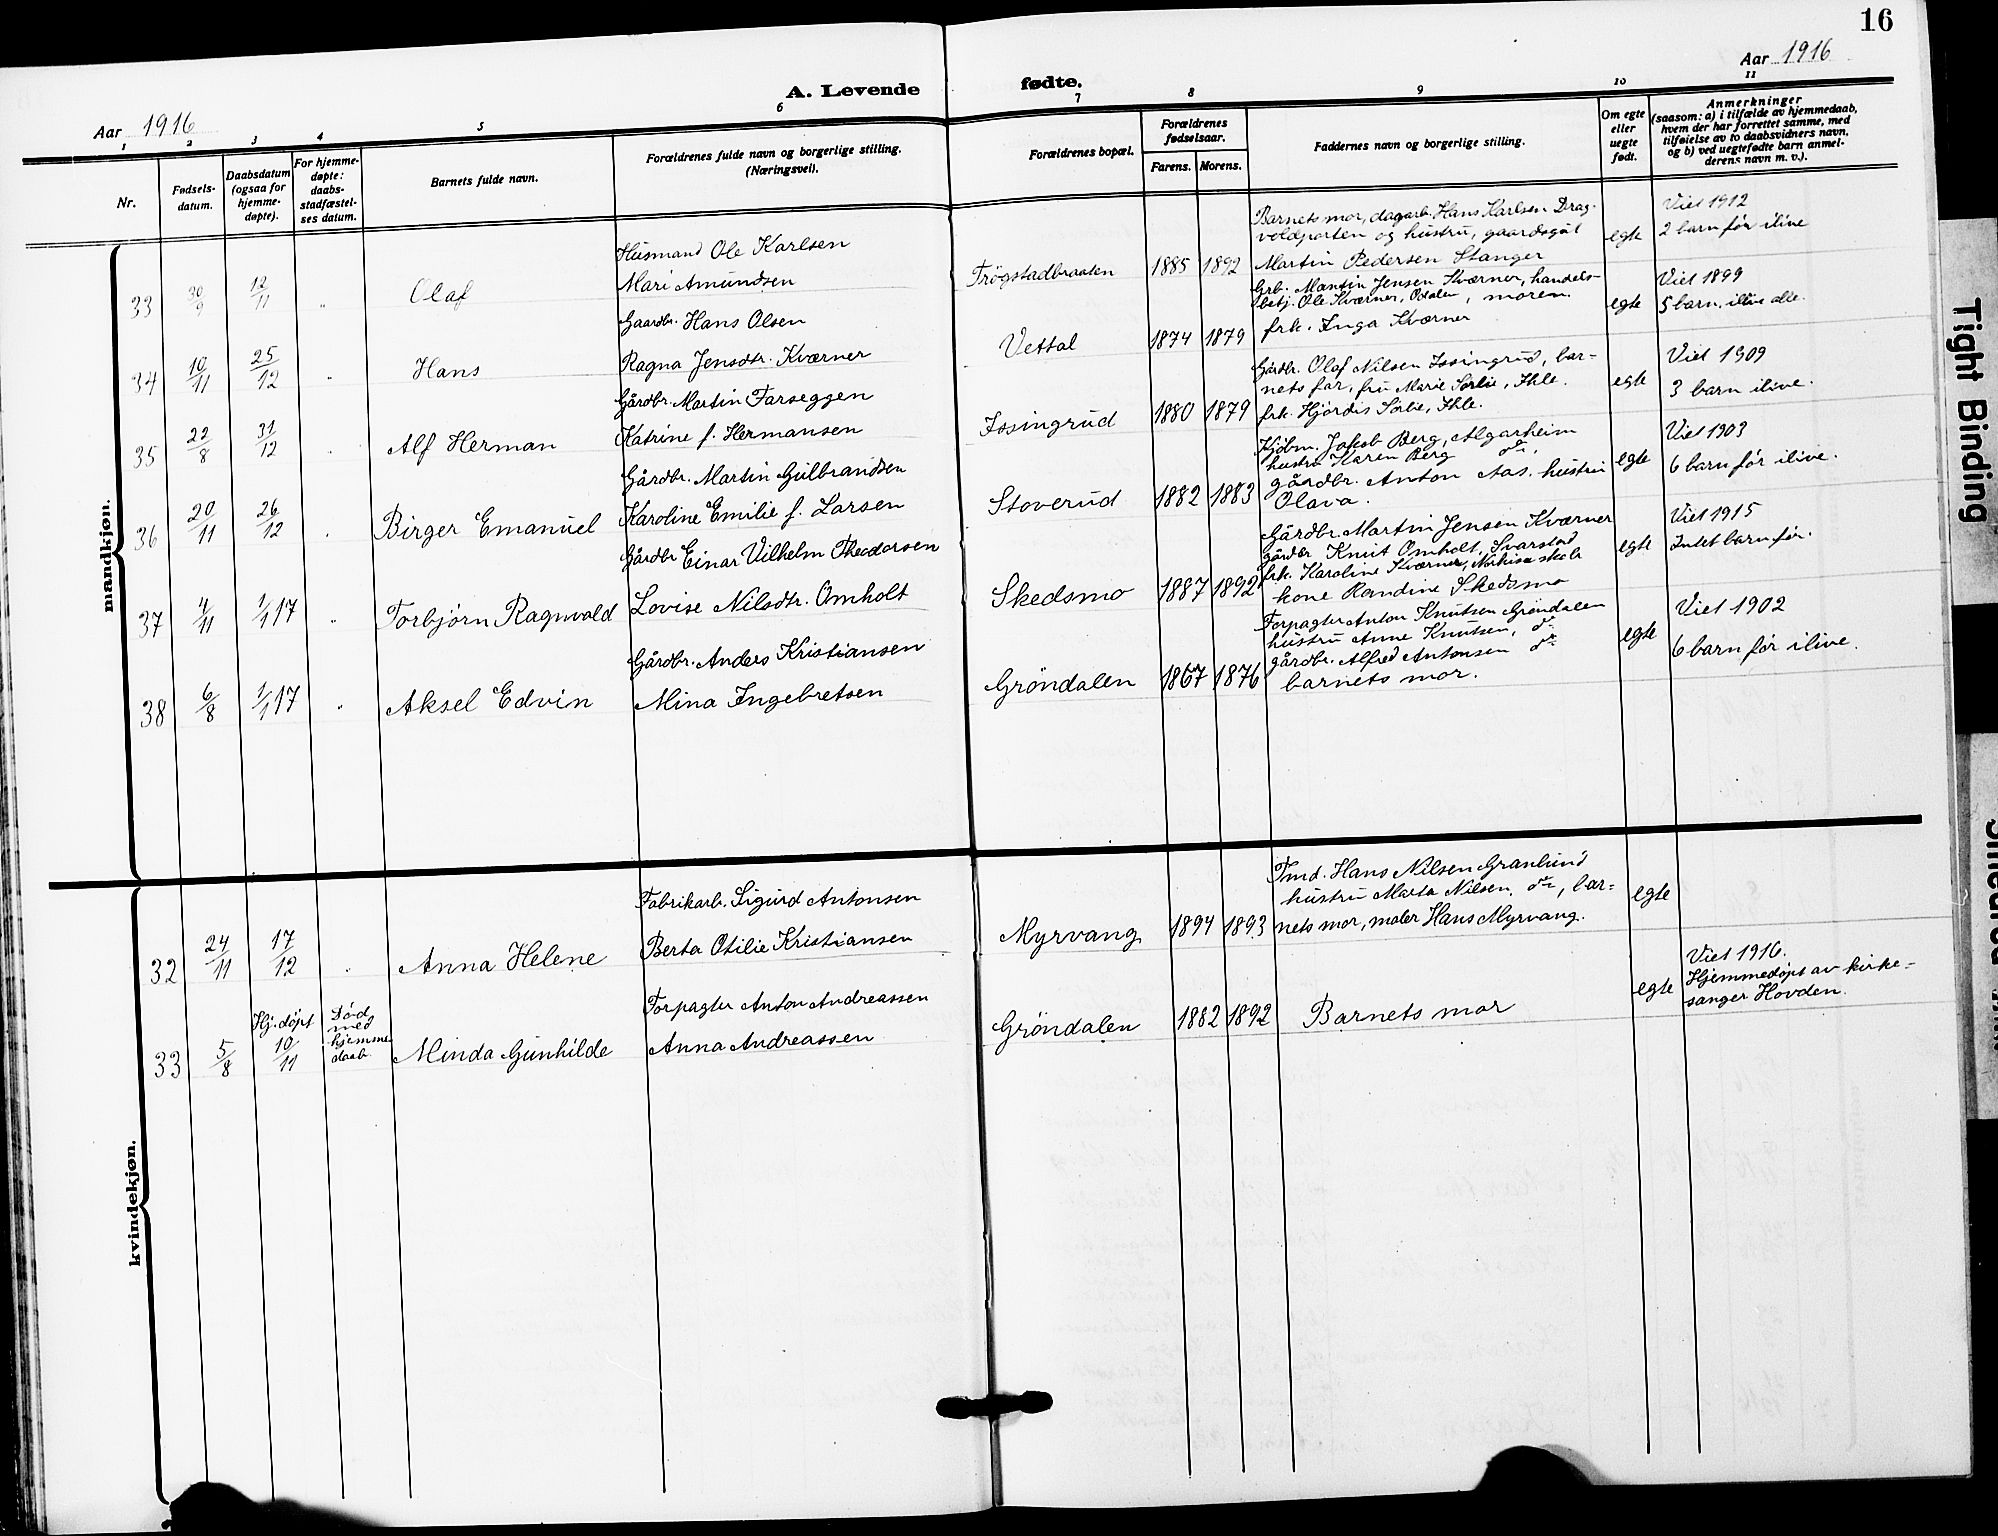 16
Aar 1916
A. Levende fødte.
Aar 1916
1 2 3 4 5 6 7 8 9 10 11
Nr.
Fødsels-
datum.
Daabsdatum
(ogsaa for
hjemme-
døpte).
For hjemme-
døpte:
daabs-
stadfæstel-
ses datum.
Barnets fulde navn.
Forældrenes fulde navn og borgerlige stilling.
(Næringsvei).
Forældrenes bopæl.
Forældrenes
fødselsaar.
Farens. Morens.
Faddernes navn og borgerlige stilling.
Om egte
eller
uegte
født.
Anmerkninger
(saasom: a) i tilfælde av hjemmedaab,
hvem der har forrettet samme, med
tilføielse av to daabsvidners navn,
og b) ved uegtefødte barn anmel-
derens navn m. v.).
mandkjøn.
33 30/9 12/11 " Olaf
Husmand Ole Karlsen
Mari Amundsen
Trögstadbraaten 1885 1892
Barnets mor, dagarb. Hans Karlsen Drag-
voldporten og hustru, gaardsgut
Martin Pedersen Stanger
egte
Viet 1912
2 barn før ilive
34 10/11 25/12 " Hans
Gaardbr. Hans Olsen
Ragna Jensdtr. Kværner
Vettal 1874 1879
Grb. Martin Jensen Kværner, handels-
betj. Ole Kværner, Odalen, moren.
frk. Inga Kværner
egte
Viet 1899
5 barn, ilive alle.
35 22/8 31/12 " Alf Herman
Gårdbr. Martin Farseggen
Katrine f. Hermansen
Issingrud 1880 1879
Gårdbr. Olaf Nilsen Issingrud, bar-
nets far, fru Marie Sørlie, Ihle.
frk. Hjördis Sörlie, Ihle.
egte
Viet 1909
3 barn ilive.
36 20/11 26/12 " Birger Emanuel
Gårdbr. Martin Gulbrandsen
Karoline Emilie f. Larsen
Stoverud 1882 1883
Kjöbm. Jakob Berg, Algarheim
hustru Karen Berg do,
gårdbr. Anton Aas. hustru
Olava.
egte
Viet 1903
6 barn før ilive.
37 4/11 1/1 17 " Torbjörn Ragnvald
Gårdbr Einar Vilhelm Theodorsen
Lovise Nilsdtr. Omholt
Skedsmo 1887 1892
Gårdbr. Martin Jensen Kværner
gårdbr Knut Omholt, Svarstad
frk. Karoline Kværner,
kone Randine Skedsmo
egte
Viet 1915
Intet barn før.
38 6/8 1/1 17 " Aksel Edvin
Gårdbr. Anders Kristiansen
Mina Ingebretsen
Gröndalen 1867 1876
Forpagter Anton Knutsen Gröndalen
hustru Anne Knutsen, do
gårdbr. Alfred Antonsen do
barnets mor.
egte
Viet 1902
6 barn før ilive.
kvindekjøn.
32 24/11 17/12 " Anna Helene
Fabrikarb. Sigurd Antonsen
Berta Otilie Kristiansen
Myrvang 1894 1893
Tmd. Hans Nilsen Granlund
hustru Marta Nilsen, do, bar-
nets mor, maler Hans Myrvang.
egte
33 5/8
Hj. døpt
10/11
Död
med
hjemme
daab.
Minda Gunhilde
Forpagter Anton Andreassen
Anna Andreassen
Gröndalen 1882 1892 Barnets mor
egte
Viet 1916.
Hjemmedøpt av kirke-
sanger Hovden.
Tight Binding